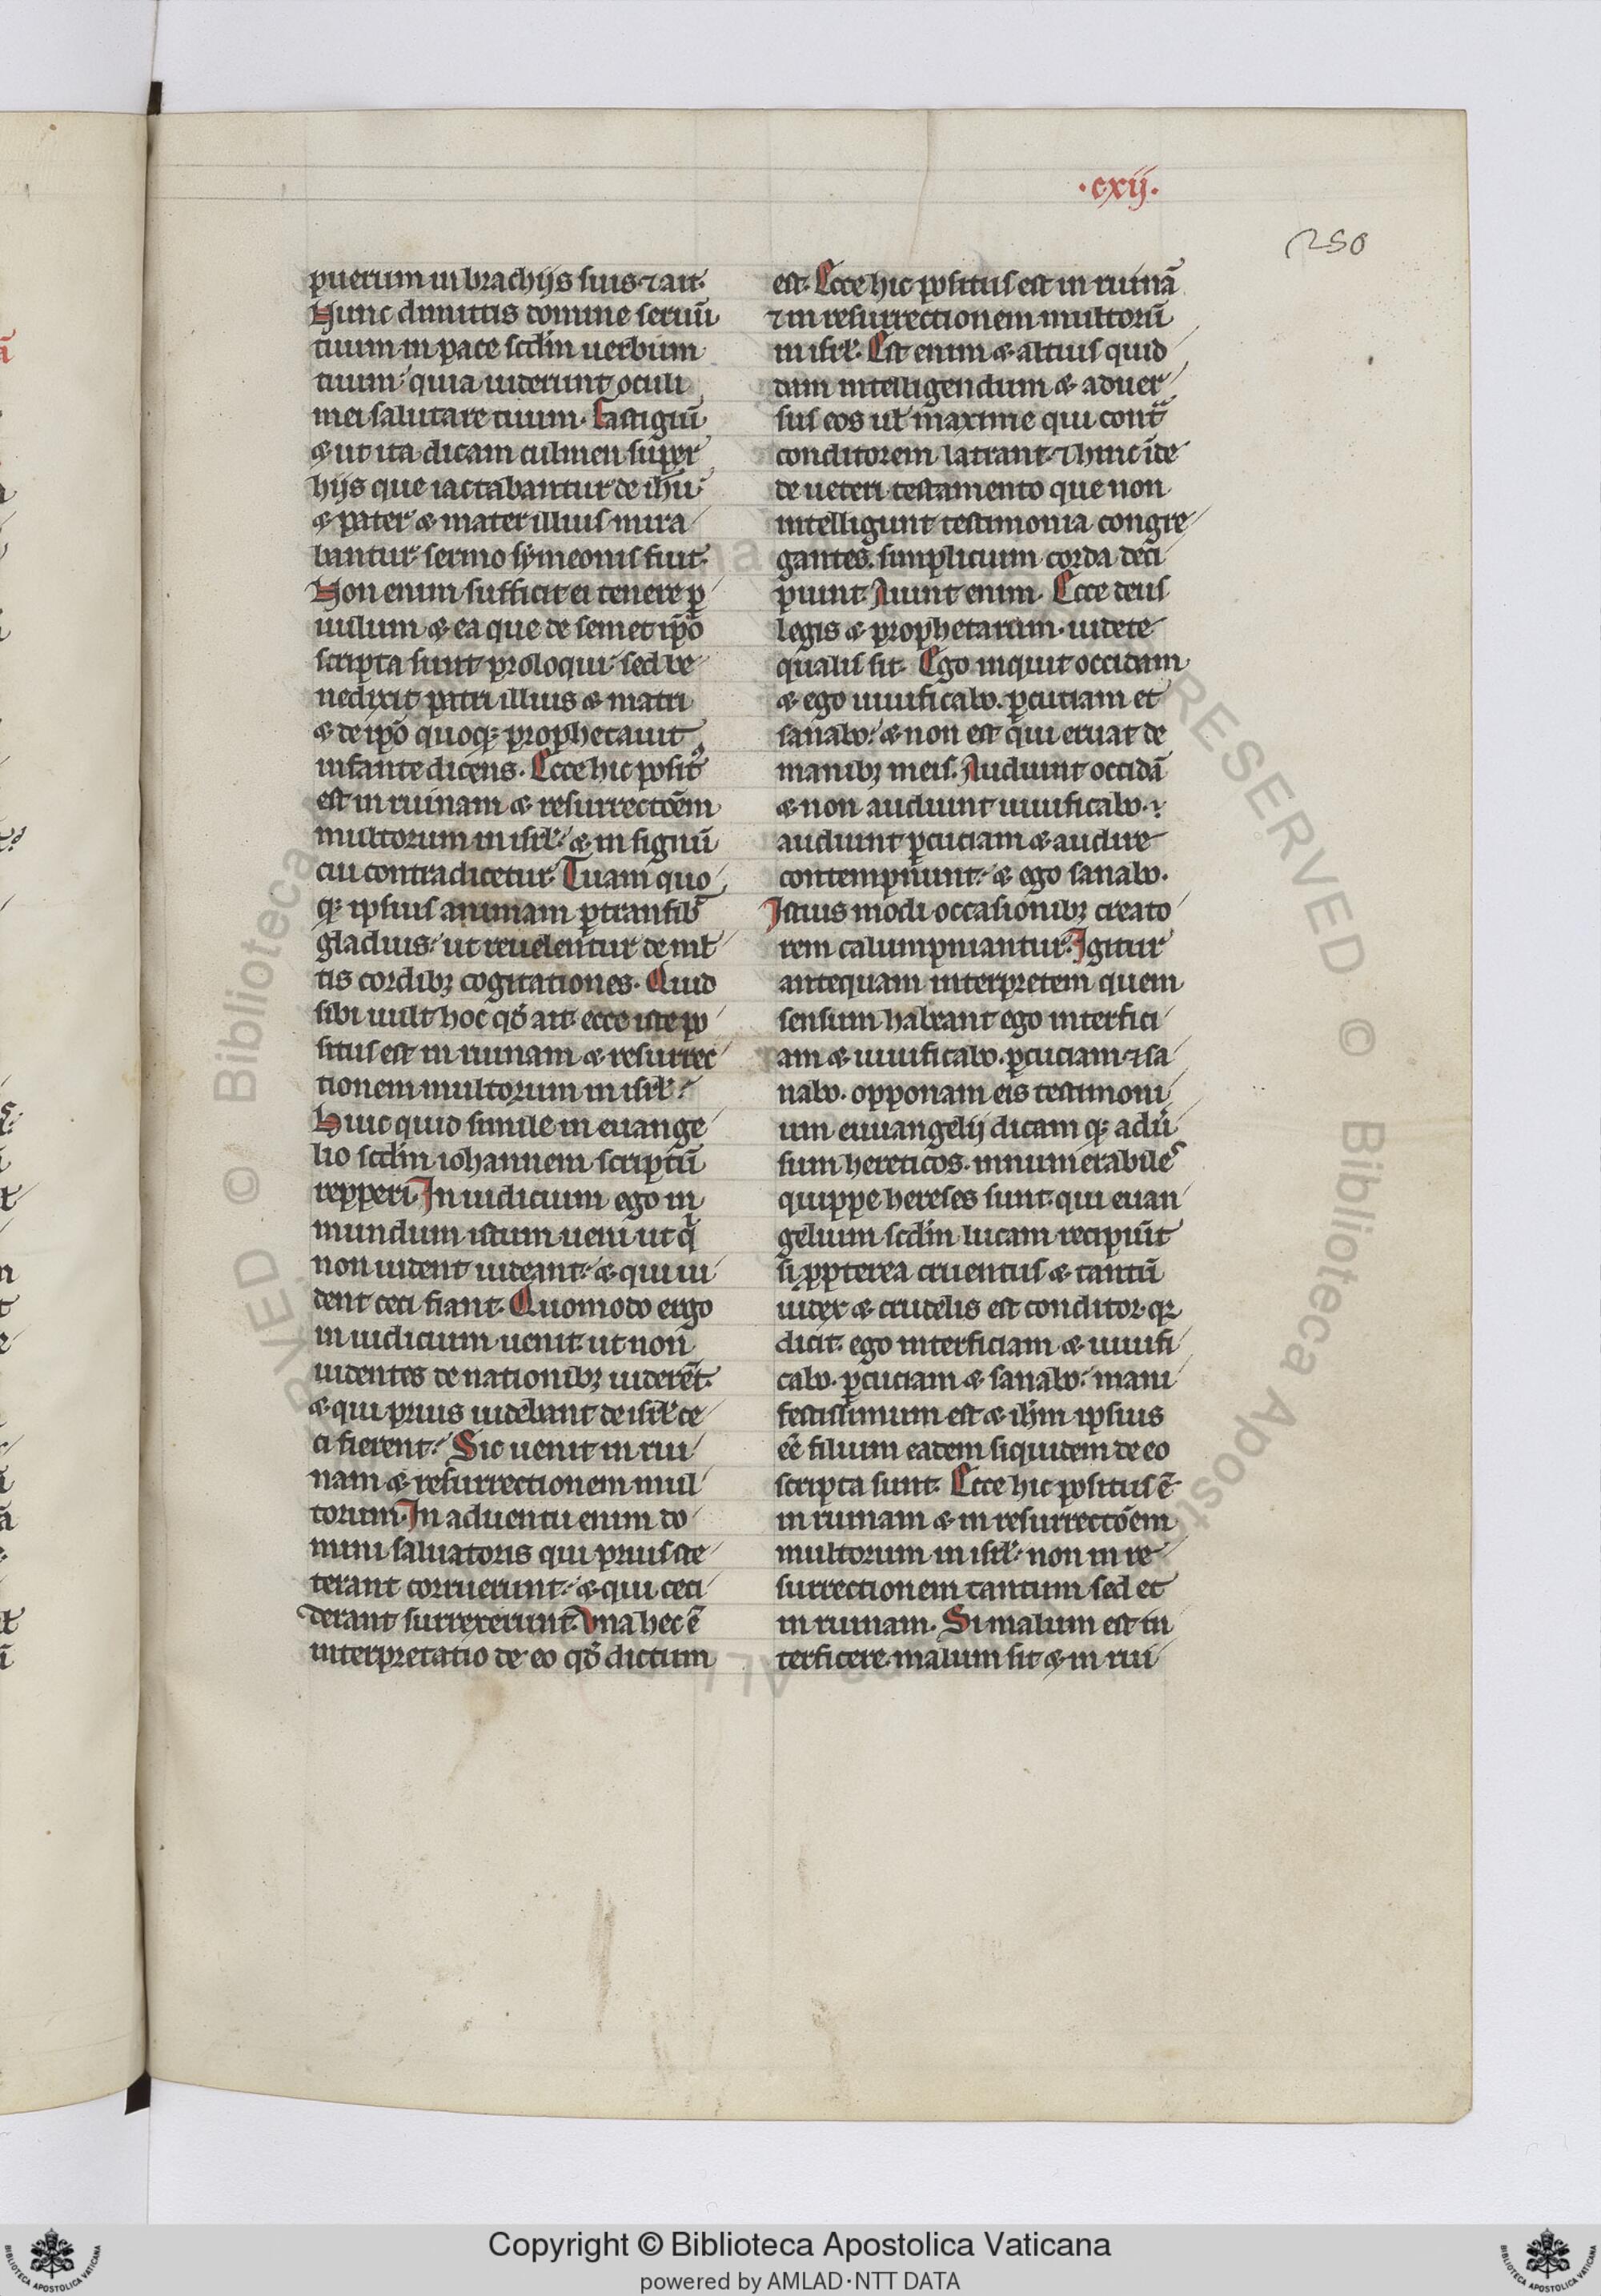 ·cxij·
250
puerum in brachijs suis ⁊ ait.
Nunc dimittis domine seruũ
tuum in pace scd̃m uerbum
tuum: quia uiderunt oculi
mei salutare tuum. Fastigiũ
& ut ita dicam culmen super
hijs que iactabantur de ih̃u:
& pater & mater illius mira
bantur. sermo symeonis fuit.
Non enim sufficit ei tenere ꝑ
uulum & ea que de semet ip̃o
scripta sunt proloqui: sed be
nedixit patri illius & matri
& de ip̃o quoqꝫ prophetauit
infante dicens. Ecce hic posit᷒
est in ruinam & resurrectõem
multorum in isrl̃: & in signũ
cui contradicetur. Tuam quo
qꝫ ipsius animam ꝑtransib̃
gladius: ut reuelentur de ml̃
tis cordibꝫ cogitationes. Quid
sibi uult hoc qd̃ ait. ecce iste po
situs est in ruinam & resurrec
tionem multorum in isrl̃:
Huic quid simile in euange
lio scd̃m iohannem scriptũ
repperi. In iudicium ego in
mundum istum ueni ut qͥ
non uident uideant: & qui ui
dent ceci fiant. Quomodo ergo
in iudicium uenit. ut non
uidentes de nationibꝫ uiderẽt.
& qui prius uidebant de isrl̃ ce
ci fierent: Sic uenit in rui
nam & resurrectionem mul
torum. In aduentu enim do
mini saluatoris qui prius ste
terant corruerunt: & qui ceci
derant surrexerunt. Una hec ẽ
interpretatio de eo qd̃ dictum
est. Ecce hic positus est in ruinã
⁊ in resurrectionem multorũ
in isrl̃. Est enim & altius quid
dam intelligendum & aduer
sus eos ul̃ maxime qui contᵃ
conditorem latrant. ⁊ hinc ĩde
de ueteri testamento que non
intelligunt testimonia congre
gantes. simplicium corda deci
piunt. Aiunt enim. Ecce deus
legis & prophetarum. uidete
qualis sit. Ego inquit occidam
& ego uiuificabo. ꝑcutiam et
sanabo: & non est qui eruat de
manibꝫ meis. Audiunt occidã
& non audiunt uiuificabo.
audiunt ꝑcutiam & audire
contempnunt: & ego sanabo.
Istius modi occasionibꝫ creato
rem calumpniantur. Igitur
antequam interpretem quem
sensum habeant ego interfici
am & uiuificabo. ꝑcutiam ⁊ sa
nabo. opponam eis testimoni
um euuangelij dicam qꝫ adũ
sum hereticos. innumerabiles
quippe hereses sunt. qui euan
gelium scd̃m lucam recipiũt
si ꝓpterea cruentus & tantũ
iudex & crudelis est conditor. qꝛ
dicit. ego interficiam & uiuifi
cabo. ꝑcutiam & sanabo: mani
festissimum est & ih̃m ipsius
eẽ filium eadem siquidem de eo
scripta sunt. Ecce hic positus ẽ
in ruinam & in resurrectõem
multorum in isrl̃. non in re
surrectionem tantum sed et
in ruinam. Si malum est in
terficere. malum sit & in rui
Copyright © Biblioteca Apostolica Vaticana
powered by AMLAD·NTT DATA